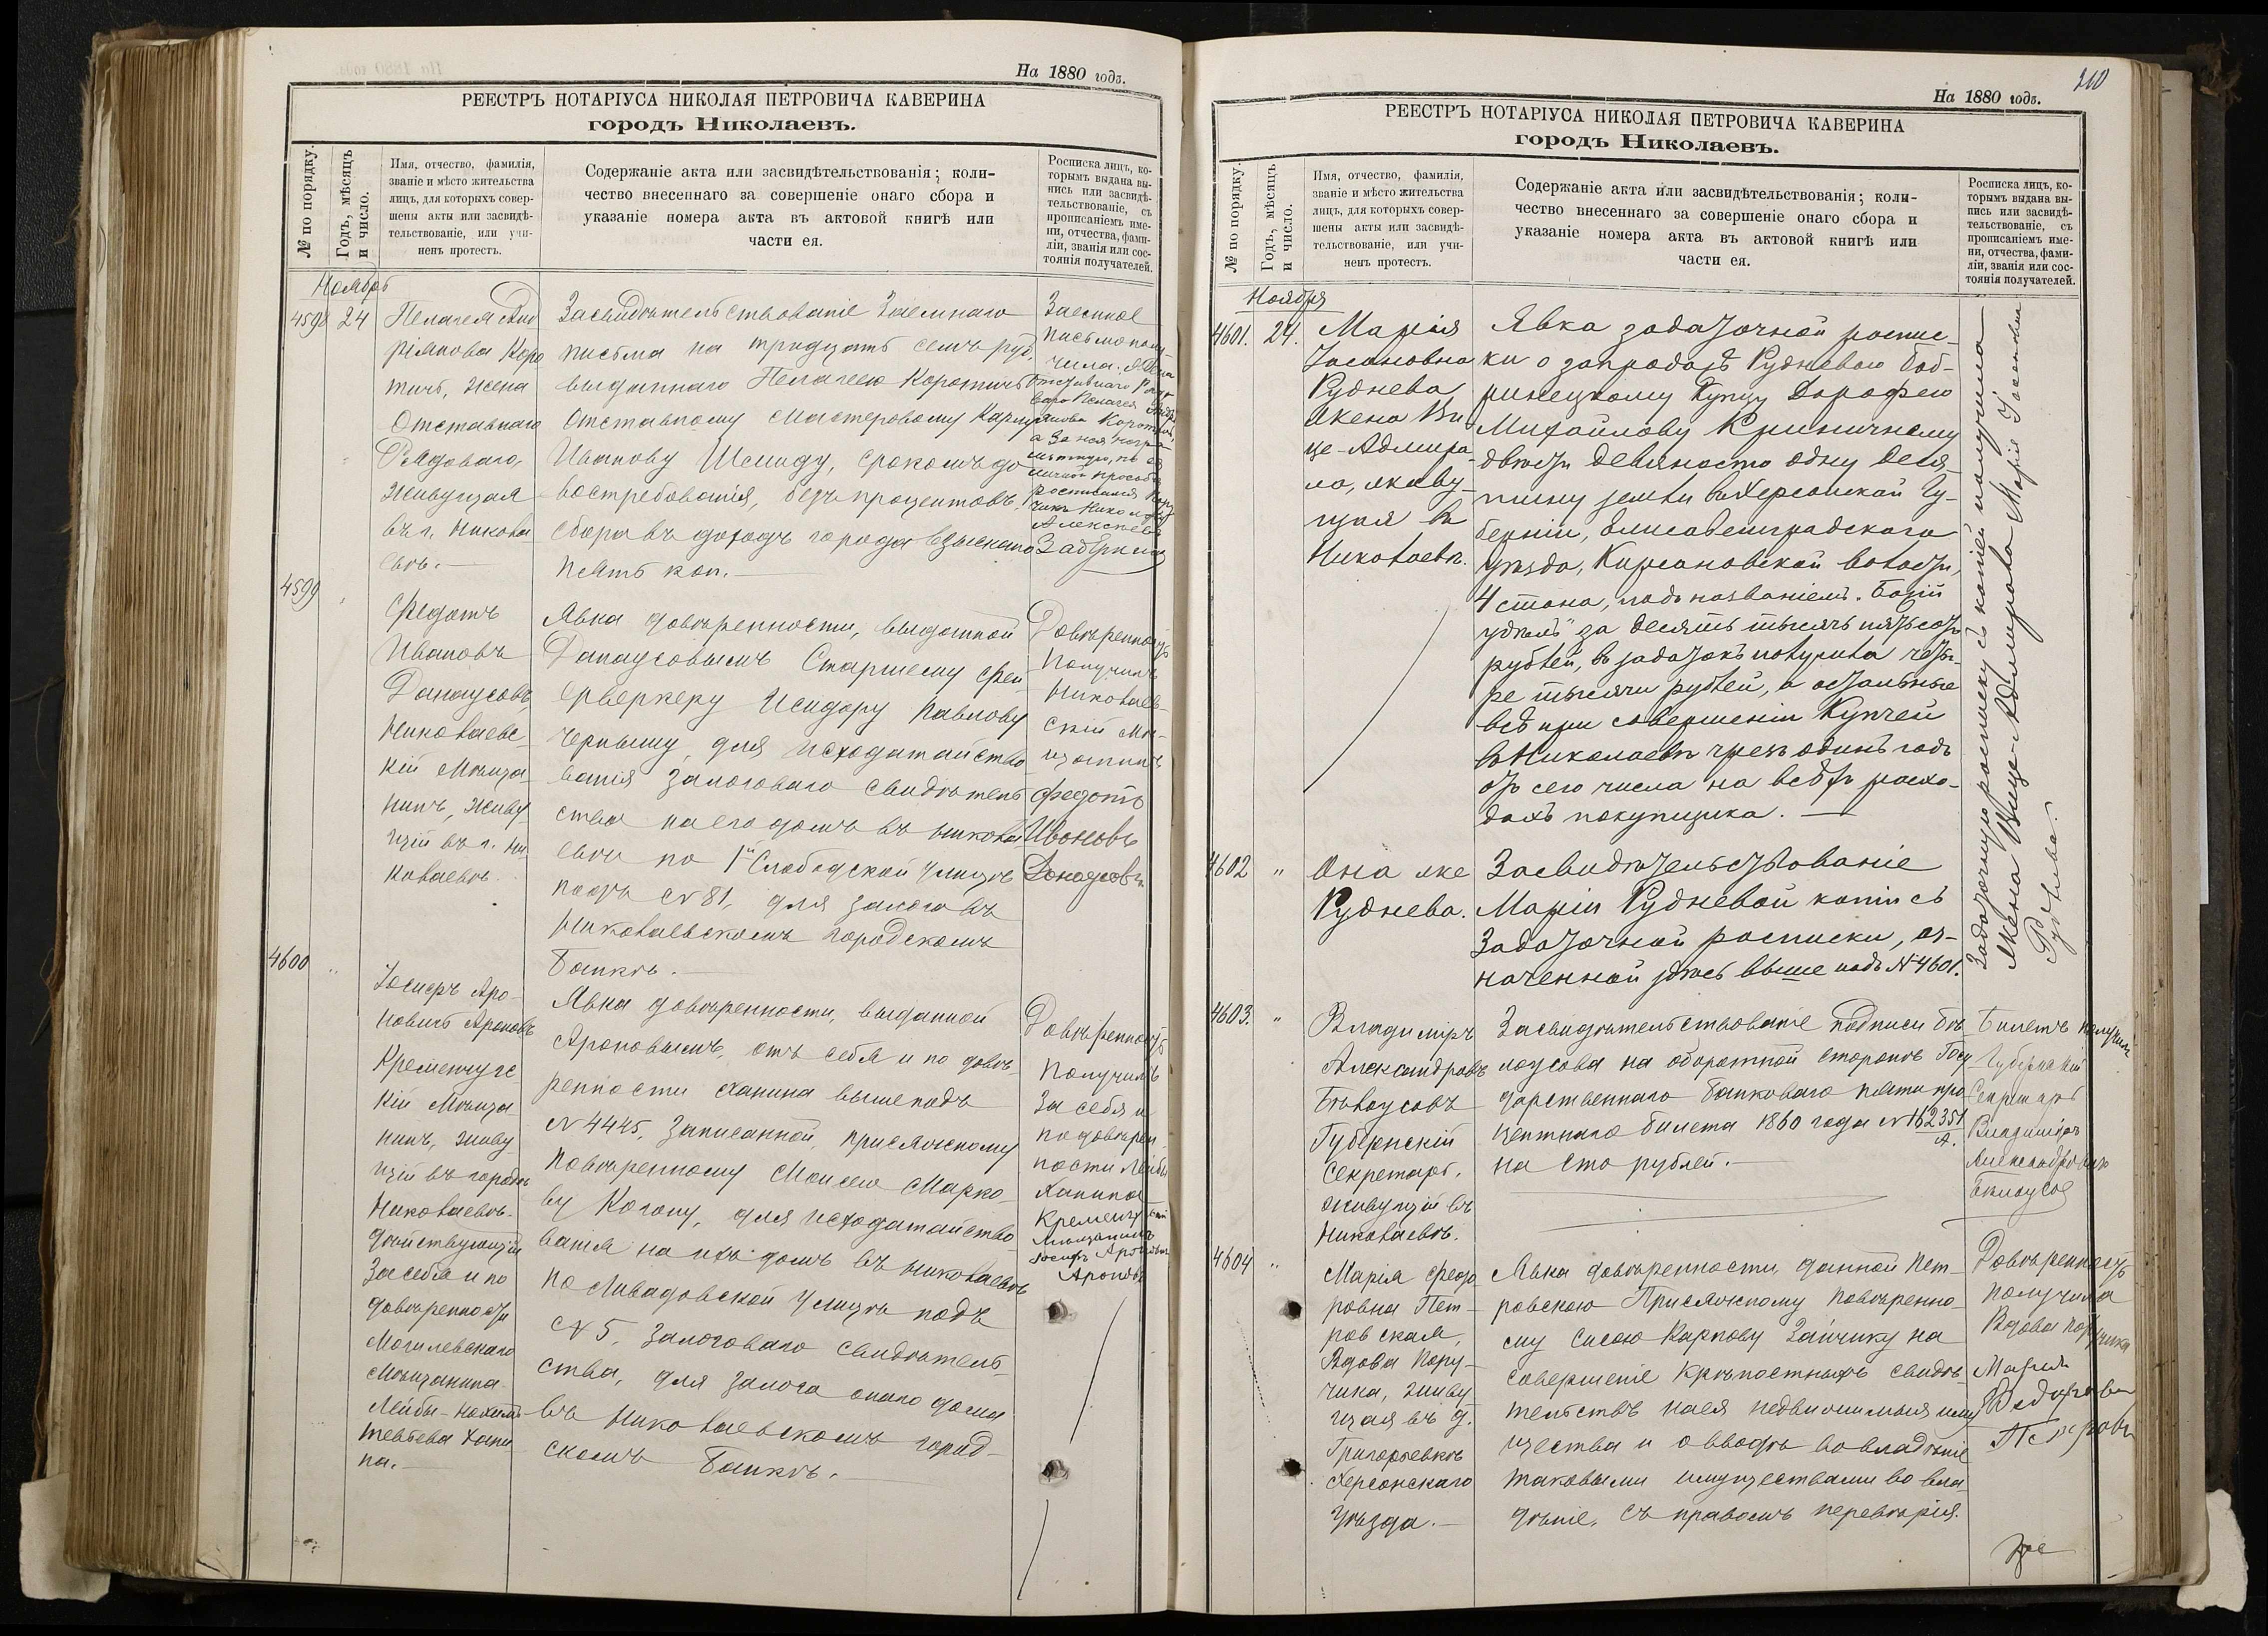 На 1880 годъ.
РЕЕСТРЪ НОТАРІУСА НИКОЛАЯ ПЕТРОВИЧА КАВЕРИНА
городъ Николаевъ.
№ по порядку.
Годъ, мѣсяцъ
и число.
Имя, отчество, фамилія,
званіе и мѣсто жительства
лицъ, для которыхъ совер-
шены акты или засвидѣ-
тельствованіе, или учи-
ненъ протестъ.
Содержаніе акта или засвидѣтельствованія; коли-
чество внесеннаго за совершеніе онаго сбора и
указаніе номера акта въ актовой книгѣ или
части ея.
Росписка лицъ, ко-
торымъ выдана вы-
пись или засвидѣ-
тельствованіе, съ
прописаніемъ име-
ни, отчества, фами-
ліи, званія или сос-
тоянія получателей.
Ноябрь
4598 24
Пелагея Анд
ріянова Коро
тичъ, жена
Отставнаго
Рядоваго,
живущая
въ г. Никола
евѣ.
Засвидѣтельствованіе Заемнаго
письма на тридцать семь руб,
выданнаго Пелагеею Коротичъ
Отставному Мастеровому Карпу
Иванову Шемиду, срокомъ до
востребованія, безъ процентовъ.
Сбора въ доходъ города взыскано
пять коп.
Заемное
письмо полу-
чила. Жена
Отставнаго Рядо
ваго Пелагея Андр
іянова Коротичъ,
а за нея негра
мотную, по ея
личной просьбѣ
росписался
Николай
Алексѣевъ
4599
Федотъ
Ивановъ
Данаусовъ,
Николаевс-
кій Мѣща-
нинъ, живу
щій въ г. Ни
колаевѣ.
Явка довѣренности, выданной
Данаусовымъ Старшему Фей-
ерверкеру Исидору Павлову
Черныму, для исходатайство
ванія залоговаго свидѣтель
ства на его домъ въ Никола
евѣ по 1й Слободской улицѣ
подъ № 81, для залога въ
Николаевскомъ Городскомъ
Банкѣ.
Довѣренность
Получилъ
Николаев-
скій Мѣ-
щанинъ
Федотъ
Ивановъ
Донаусовъ
4600 "
Іосифъ Аро-
новичъ Ароновъ
Кременчугс-
кій Мѣща-
нинъ, живу
щій въ городѣ
Николаевѣ.
дѣйствующій
За себя и по
довѣренности
Могилевскаго
Мѣщанина
Лейбы-
Хани
на.
Явка довѣренности, выданной
Ароновымъ, отъ себя и по довѣ-
ренности Ханина выше подъ
№ 4445, записанной, присяжному
повѣренному Моисею Марко-
ву Когону, для исходатайство
ванія на ихъ домъ въ Николаевѣ
по Ливадовской улицѣ подъ
№ 5. залоговаго свидѣтель-
ства, для залога онаго дома
въ Николаевскомъ город-
скомъ Банкѣ.
Довѣренность
Получилъ
За себя и
по довѣрен
ности Лейбы
Ханина
Кременчугскій
Мѣщанинъ
Іосифъ Ароновичъ
Ароновъ
210
На 1880 годъ.
РЕЕСТРЪ НОТАРІУСА НИКОЛАЯ ПЕТРОВИЧА КАВЕРИНА
городъ Николаевъ.
№ по порядку.
Годъ, мѣсяцъ
и число.
Имя, отчество, фамилія,
званіе и мѣсто жительства
лицъ, для которыхъ совер-
шены акты или засвидѣ-
тельствованіе, или учи-
ненъ протестъ.
Содержаніе акта или засвидѣтельствованія; коли-
чество внесеннаго за совершеніе онаго сбора и
указаніе номера акта въ актовой книгѣ или
части ея.
Росписка лицъ, ко-
торымъ выдана вы-
пись или засвидѣ-
тельствованіе, съ
прописаніемъ име-
ни, отчества, фами-
ліи, званія или сос-
тоянія получателей.
Ноября
4601. 24.
Марія
Іасановна
Руднева
Жена Ви
це-Адмира
ла, живу-
щая въ
Николаевѣ.
Явка задаточной роспис-
ки о запродажѣ Рудневою Боб-
ринецкому Купцу Дорофею
Михайлову Криничному
двѣсти девяносто одну деся-
тину земли въ Херсонской Гу-
берніи, Елисаветградскаго
Уѣзда, Кирсановской волости,
4 стана, подъ названіемъ "Божій
удѣлъ" за десять тысячъ пятьсотъ
рублей, въ задатокъ получила четы-
ре тысячи рублей, а остальные
всѣ при совершеніи Купчей
въ Николаевѣ чрезъ одинъ годъ
отъ сего числа на всѣхъ расхо-
дахъ покупщика.
Задаточную росписку съ копіей получила
Жена Вице-Адмирала Марія
Руднева.
4602 "
Она же
Руднева.
Засвидѣтельствованіе
Маріи Рудневой копіи съ
Задаточной росписки, оз-
наченной здѣсь выше подъ № 4601.
4603. "
Владиміръ
Александровъ
Бѣлоусовъ
Губернскій
Секретарь,
живущій въ
Николаевѣ.
Засвидѣтельствованіе подписи Бѣ
лоусова на оборотной сторонѣ Госу
дарственнаго Банковаго пяти про
центнаго билета 1860 года № 162351
А.
на Сто рублей.
Билетъ получилъ
Губернскій
Секретарь
Владиміръ
Александровъ
Бѣлоусов
4604 "
Марія Федо
ровна Пет-
ровская,
Вдова Пору-
чика, живу
щая въ д.
Григорьевкѣ
Херсонскаго
Уѣзда.
Явка довѣренности, данной Пет-
ровскою Присяжному повѣренно-
му Сисою Карпову Зайчику на
совершеніе крѣпостныхъ свидѣ-
тельствъ на ея недвижимыя иму
щества и о вводѣ во владѣніе
таковыми имуществами во вла
дѣніе, съ правомъ перевѣрія.
Довѣренность
получила
Вдова Поручика
Марія
Федорова